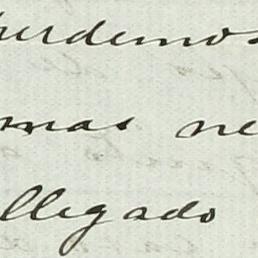 perdemos
mas ne
llegado